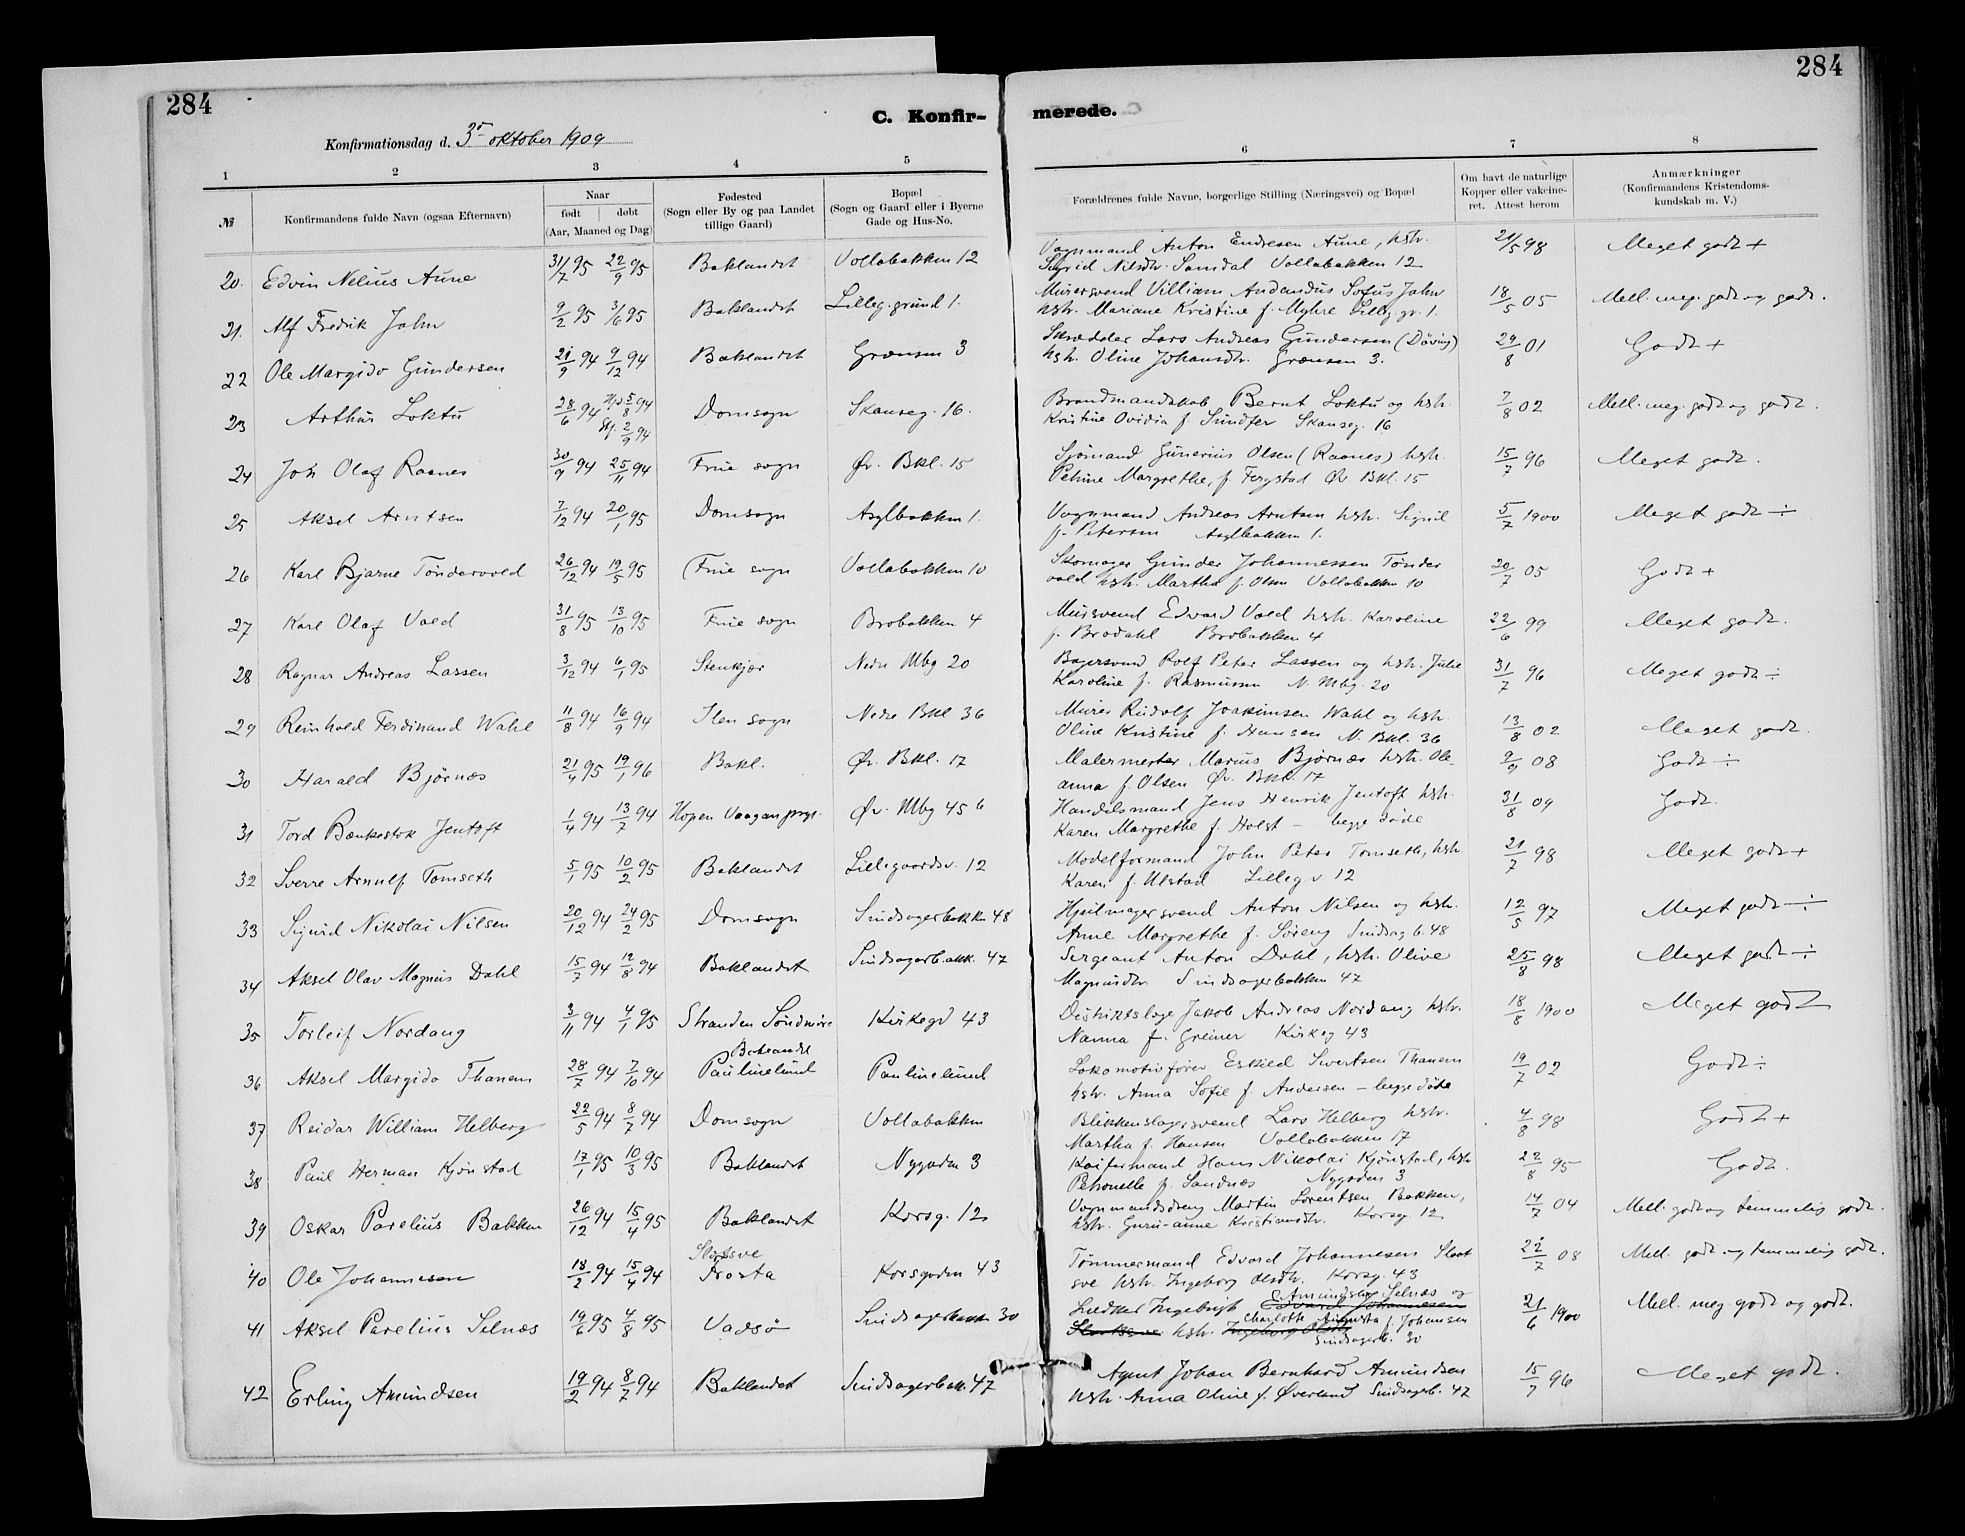 284
284
C. Konfir-
merede.
Konfirmationsdag d. 3. oktober 1909
1 2 3 4 5
6 7 8
№ Konfirmandens fulde Navn (ogsaa Efternavn) Naar født døbt (Aar, Maaned og Dag) Fødested (Sogn eller By og paa Landet tillige Gaard) Bopæl (Sogn og Gaard eller i Byerne Gade og Hus-No.
Forældrenes fulde Navne, borgerlige Stilling (Næringsvei) og Bopæl Om havt de naturlige Kopper eller vakcineret. Attest herom Anmærkninger (Konfirmandens Kristendomskundskab m. V.)
20. Edvin Nelius Aune 31/7 95 22/9 95 Baklandet Vollabakken 12
Vognmand Anton Endresen Aune, hstr. 21/5 98 Meget godt +
Sigrid Nilsdtr. Samdal Vollabakken 12
21. Alf Fredrik Jahn 9/2 95 3/6 95 Baklandet Lilleg. grund 1.
Murersvend Villiam Andandus Sofus Jahn 18/5 05 Mell. meg. godt og godt.
hstr. Mariane Kristine f. Myhre Lilleg. gr. 1.
22 Ole Margido Gundersen 21/9 94 9/12 94 Baklandet Grænsen 3
Skrædder Lars Andreas Gundersen (Døving) 29/8 01 Godt +
hstr. Oline Johansdtr. Grænsen 3.
23 Arthur Loktu 28/6 94 5/8 94 2/9 94 Domsogn Skanseg. 16.
Brandmandskab Bernt Loktu og hstr. 7/8 02 Mell. meg. godt og godt.
Kristine Ovidia f. Sundfer Skanseg. 16
24 Joh Olaf Raanes 30/9 94 25/11 94 Frue sogn Øv. Bkl. 15
Sjømand Gunerius Olsen (Raanes) hstr. 15/7 96 Meget godt.
Petrine Margrethe, f. Fergstad Øv. Bkl. 15
25 Aksel Arntsen 7/12 94 20/1 95 Domsogn Asylbakken 1.
Vognmand Andreas Arntsen hstr. Signil 5/7 1900 Meget godt ÷
f. Petersen Asylbakken 1.
26 Karl Bjarne Tøndervold 26/12 94 19/5 95 (Frue sogn Vollabakken 10
Skomager Gunder Johannessen Tønder 20/7 05 Godt +
vold hstr. Martha f. Olsen Vollabakken 10
27 Karl Olaf Vold 31/8 95 13/10 95 Frue sogn Brobakken 4
Mursvend Edvard Vold hstr. Karoline 22/6 99 Meget godt.
f. Brodahl Brobakken 4
28 Ragnar Andreas Lassen 3/12 94 6/1 95 Stenkjær Nedre Mbg 20
Bagersvend Rolf Peter Lassen og hstr. Julie 31/7 96 Meget godt ÷
Karoline f. Rasmussen N. Mbg. 20
29 Reinhold Ferdinand Wahl 11/8 94 16/9 94 Ilen sogn Nedre Bkl 36
Murer Rudolf Joakimsen Wahl og hstr. 13/8 02 Meget godt.
Oline Kristine f. Hansen N. Bkl. 36
30 Harald Bjørnæs 21/4 95 19/1 96 Bakl. Øv. Bkl. 17
Malermester Marius Bjørnæs hstr. Ole- 9/9 08 Godt ÷
anna f. Olsen Øv. Bkl. 17
31 Tord Benkestok Jentoft 1/4 94 13/7 94 Hopen Vaagan prgj. Øv. Mbg 45 b
Handelsmand Jens Henrik Jentoft hstr. 31/8 09 Godt.
Karen Margrethe f. Holst - begge døde
32 Sverre Arnulf Tomseth 5/1 95 10/2 95 Baklandet Lillegaardsv. 12
Modelformand John Peter Tomseth, hstr 21/7 98 Meget godt +
Karen f. Ulstad Lilleg. v. 12
33 Sigurd Nikolai Nilsen 20/12 94 24/2 95 Domsogn Sindsagerbakken 48
Hjulmagersvend Anton Nilsen og hstr. 12/5 97 Meget godt ÷
Anne Margrethe f. Søreng Sindsag b. 48
34 Aksel Olav Magnus Dahl 15/7 94 12/8 94 Baklandet Sindsagerbakk. 47
Sergeant Anton Dahl, hstr. Olive 25/8 98 Meget godt ÷
Magnusdtr. Sindsagerbakken 47
35 Torleif Nordang 3/11 94 4/1 95 Stranden Søndmøre Kirkegd 43
Distriktslæge Jakob Andreas Nordang hstr. 18/8 1900 Meget godt
Nanna f. Greiner Kirkeg 43
36 Aksel Margido Thanem 28/7 94 7/10 94 Baklandet Paulinelund Paulinelund
Lokomotivfører Eskild Sivertsen Thanem 19/7 02 Godt ÷
hstr. Anna Sofie f. Andersen - begge døde
37 Reidar William Helberg 22/5 94 8/7 94 Domsogn Vollabakken
Blikkenslagersvend Lars Helberg hstr. 4/8 98 Godt +
Martha f. Hansen Vollabakken 17
38 Paul Herman Kjønstad 17/1 95 10/3 95 Baklandet Nygaden 3
Koifurmand Hans Nikolai Kjønstad, hstr 22/8 95 Godt.
Petronelle f. Sandnæs Nygaden 3
39 Oskar Parelius Bakken 26/12 94 15/4 95 Baklandet Korsg. 12
Vognmandsdreng Martin Lorentsen Bakken, 14/7 04 Mell. godt og temmelig godt.
hstr. Guru-anne Kristiansdtr. Korsg. 12
40 Ole Johannesen 18/2 94 15/4 94 Slotsve Frosta Korsgaden 43
Tømmermand Edvard Johannesen Slot 22/7 08 Mell. godt og temmelig godt.
sve hstr. Ingeborg Olsdtr. Korsg. 43
41 Aksel Parelius Selnæs 19/6 95 4/8 95 Vadsø Sindsagerbakken 30
Snedker Ingebrigt Edvard Johannesen Amundsen Selnæs og 21/6 1900 Mell. meg godt og godt.
Slotsve hstr. Ingeborg Olsdtr Charlotte Augusta f. Johansen
Sindsagerb. 30
42 Erling Amundsen 19/2 94 8/7 94 Baklandet Sindsagerbak. 47
Agent Johan Bernhard Amundsen 15/7 96 Meget godt.
hstr. Anna Oline f. Øverland Sindsagerb. 47